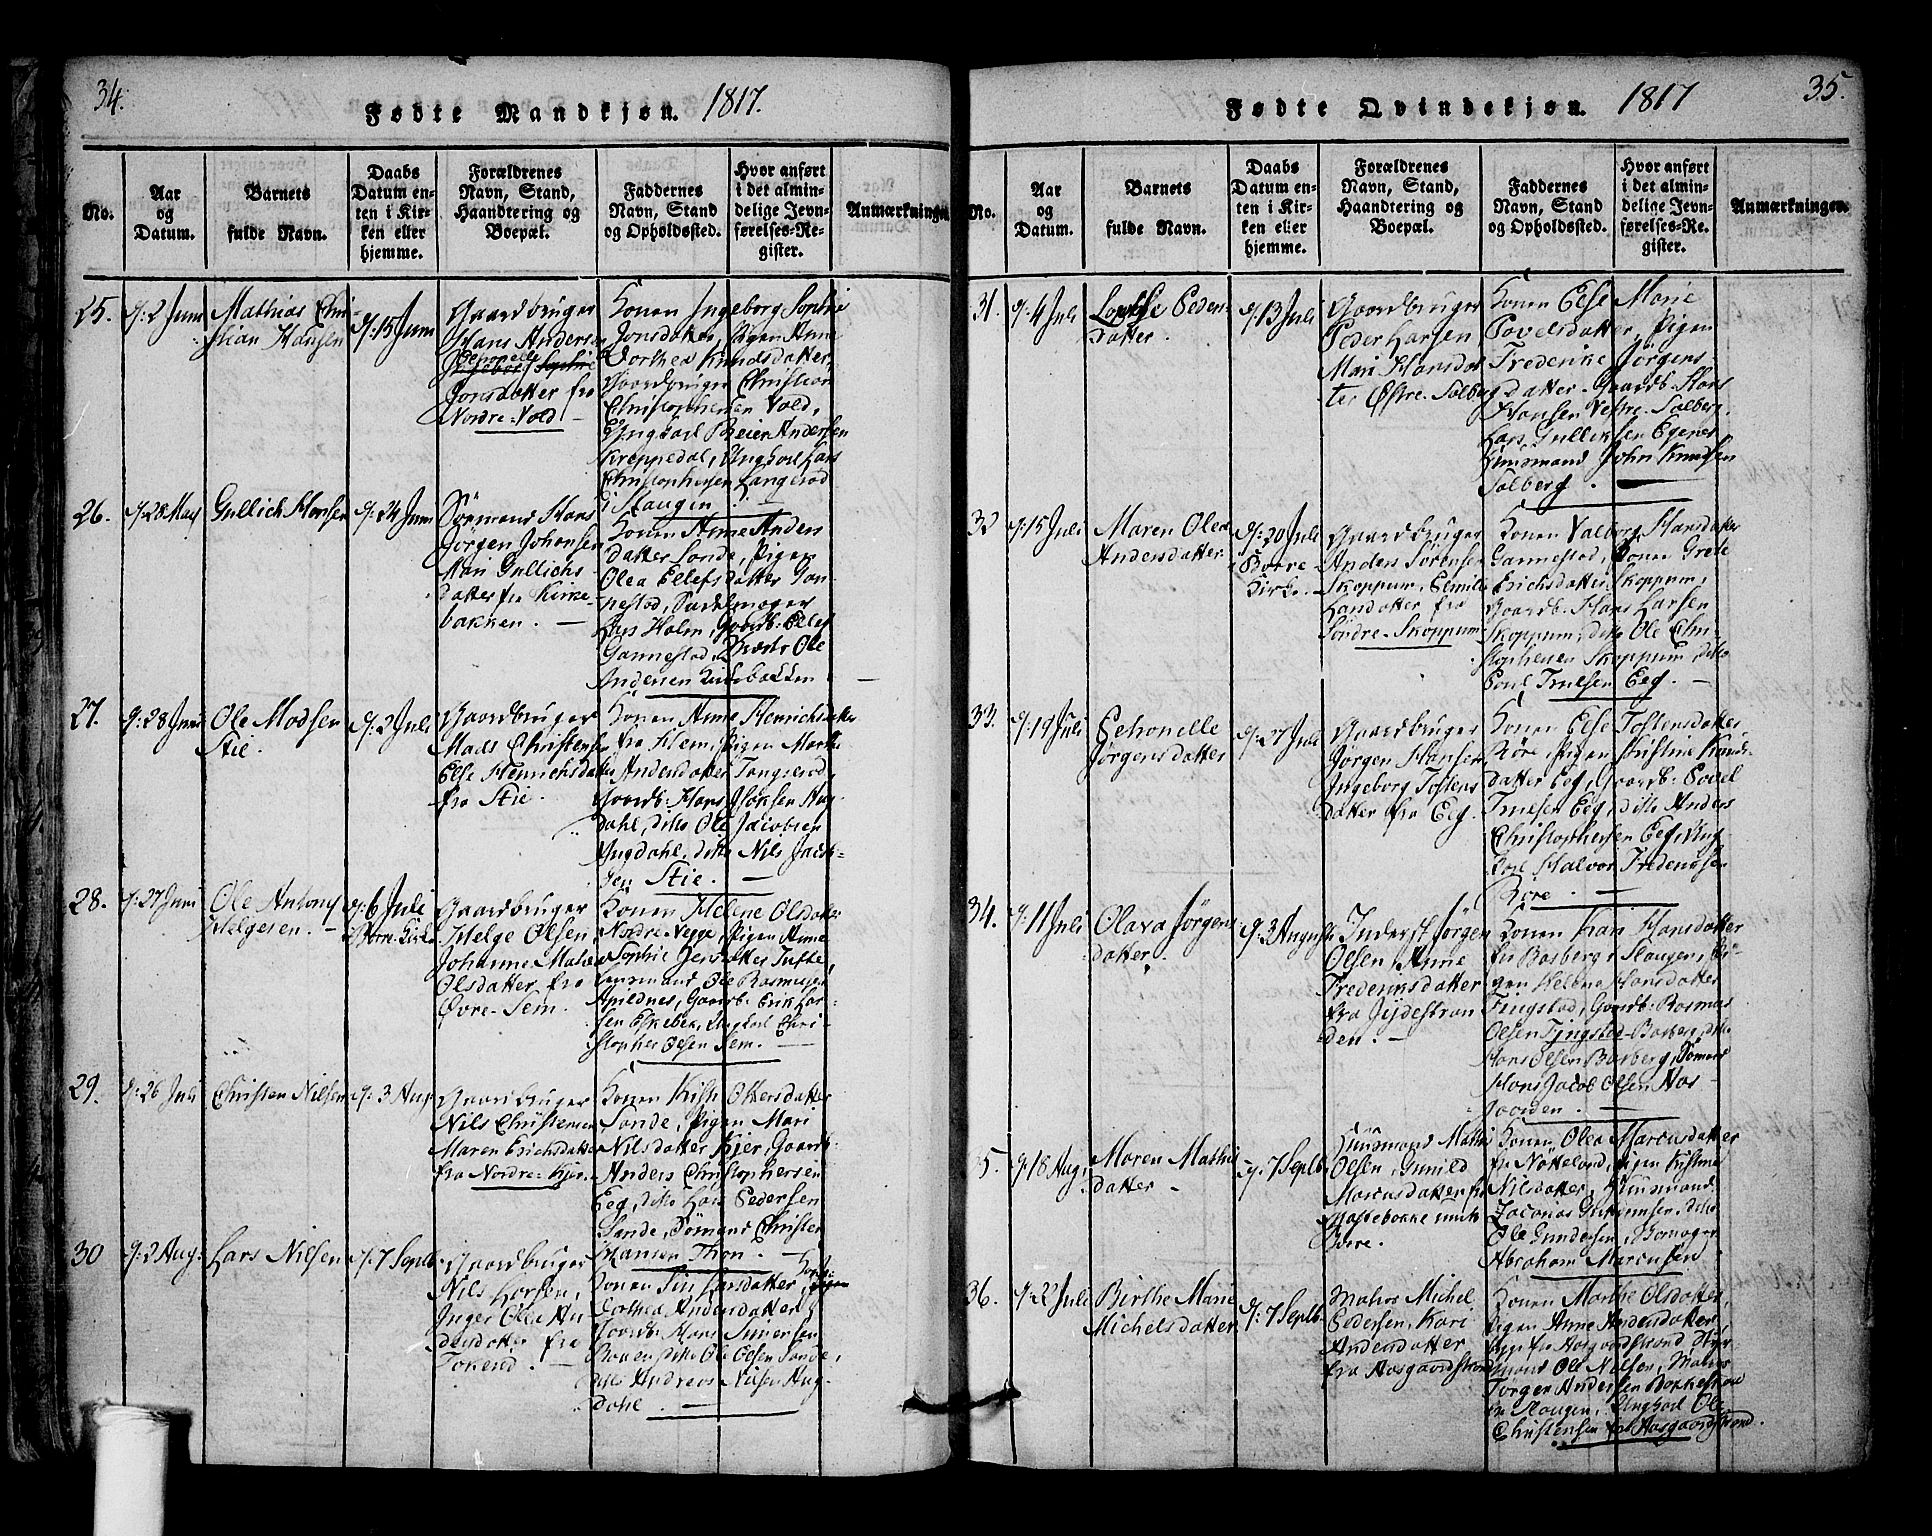 34.
Fødte Mandkjøn. 1817.
No.
Aar
og
Datum.
Barnets
fulde Navn.
Daabs
Datum en-
ten i Kir-
ken eller
hjemme.
Forældrenes
Navn, Stand,
Haandtering og
Boepæl.
Faddernes
Navn, Stand
og Opholdssted.
Hvor anført
i det almin-
delige Jevn-
førelses-Re-
gister.
Anmærkninger
25.
d: 2 Juni
Mathias Chri-
stian Hansen
d: 15 Juni
Gaardbruger
Hans Anderse
Jonsdatter fra
Nordre-Vold
Konen Ingeborg Sophie
Jonsdatter, Pigen Anne
Dorthea Knudsdatter,
Gaardbruger Christian
Christophersen Vold,
Ungkarl Beier Andersen
Kreppedal, Ungkarl Lars
Christophersen Langerød
i Slaugen.
26.
d: 28 May
Gullich Hansen
d: 24 Juni
Sømand Hans
Jørgen Johansen
Mari Gullichs-
datter fra Kirke-
bakken.
Konen Anne Anders
datter Sande, Pigen
Olea Ellefsdatter Gan-
nestad,
Lars Holm, Gaardb: Ellef
Gannestad, Ole
Andersen Kirkebakken
27.
d: 28 Juni
Ole Madsen
Stie.
d: 2 Juli
Gaardbruger
Mads Christense
Else Henrichsdatter
fra Stie.
Konen Anne Henrichsdatter
fra Hem, Pigen Marthe
Andersdatter Tangsrød,
Gaardb: Hans Isaksen Aug-
dahl, ditto Ole Jacobsen
Augdahl, ditto Nils Jacob-
sen Stie.
28.
d: 27 Juni
Ole Antony
Helgesen.
d: 6 Juli
Borre Kirke
Gaardbruger
Helge Olsen,
Johanne Malene
Olsdatter fra
Øvre-Sem.
Konen Helene Olsdatter
Nordre-Vegge, Pigen Anne
Sophie Jensdatter Tufte,
Ole Rasmusen
Apildnes, Gaardb: Erik Lar-
sen Eskebek, Ungkarl Chri-
stopher Olsen Sem.
29.
d: 26 Juli
Christen Nilsen
d: 3 Aug
Gaardbruger
Nils Christensen
Maren Erichsdatter
fra Nordre-Kjær.
Konen Kirsti Ottersdatter
Sande, Pigen Mari
Nilsdatter Kjær, Gaardb:
Anders Christophersen
Eeg, ditto Lars Pedersen
Sande, Sømand Christen
Hansen Thon.
30
d: 2 Aug:
Lars Nilsen
d: 7 Septb.
Gaardbruger
Nils Larsen,
Inger Olea An
dersdatter fra
Tokerød.
Konen Siri Larsdatter,
Dorthea Andersdatter
Gaardb: Hans Simersen
ditto Ole Olsen Sande,
ditto Andreas Nilsen Aug-
dahl.
35.
Fødte Qvindekjøn. 1817
No.
Aar
og
Datum.
Barnets
fulde Navn.
Daabs
Datum en-
ten i Kir-
ken eller
hjemme.
Forældrenes
Navn, Stand,
Haandtering og
Boepæl.
Faddernes
Navn, Stand
og Opholdssted.
Hvor anført
i det almin-
delige Jevn-
førelses-Re-
gister.
Anmærkninger.
31.
d: 4 Juli
Peders
datter.
d: 13 Juli
Gaardbruger
Peder Larsen
Mari Hansdat
ter Østre-Solberg
Konen Else Marie
Povelsdatter, Pigen
Frederike Jørgens-
datter, Gaardb: Hans
Hansen Vestre-Solberg,
Lars Gulliksen Egenes
Huusmand John Knudsen
Solberg.
32
d: 15 Juli
Maren Olea
Andersdatter
d: 20 Juli
Borre
Kirke.
Gaardbruger
Anders Sørensen
Skoppum,
Larsdatter fra
Søndre-Skoppum
Konen Valborg Hansdatter
Gannestad, Konen Grete
Erichsdatter Skoppum,
Gaardb: Hans Larsen
Skoppum, ditto Ole Chri-
stophersen Skoppum, ditto
Poul Truelsen Eeg.
33.
d: 19 Juli
Petronelle
Jørgensdatter
d: 27 Juli
Gaardbruger
Jørgen Hansen
Ingeborg Tostens
datter fra Eeg.
Konen Else Tostensdatter
Røre, Pigen Kristine Knuds-
datter Eeg, Gaardb: Povel
Truelsen Eeg, ditto Anders
Christophersen Eeg, Ung
karl Halvor Frederiksen
Røre.
34.
d: 11 Juli
Olava Jørgens
datter.
d: 3 August
Inderst Jørgen
Olsen, Anne
Frederiksdatter
fra Jydestran
den.
Konen Kari Hansdatter
fra Basberg i Slaugen, Pi-
gen Helene Hansdatter
Fingstad, Gaardb: Rasmus
Olsen Basberg, ditto
Hans Olsen Basberg, Sømand
Hans Jacob Olsen Aas-
gaarden.
35.
d: 18 Aug:
Maren Mathis
datter
d: 7 Septb.
Huusmand Mathis
Olsen, Gunild
Marcusdatter fra
Borre.
Konen Olea Marcusdatter
fra Nøtteland, Pigen Kristine
Nilsdatter, Huusmand
Zacarias Guttormsen, ditto
Ole Gundersen,
Abraham Marcusen
36.
d: 22 Juli
Birthe Marie
Michelsdatter
d: 7 Septb.
Matros Michel
Pedersen, Kari
Andersdatter
fra Aasgaardstrand
Konen Marthe Olsdatter,
Pigen Anne Andersdatter
fra Aasgaardstrand, Styr-
mand Ole Nilsen, Matros
Jørgen Andersen Bakkeskou
i Slaugen, Ungkarl Ole
Christensen fra Aasgaardstrand.